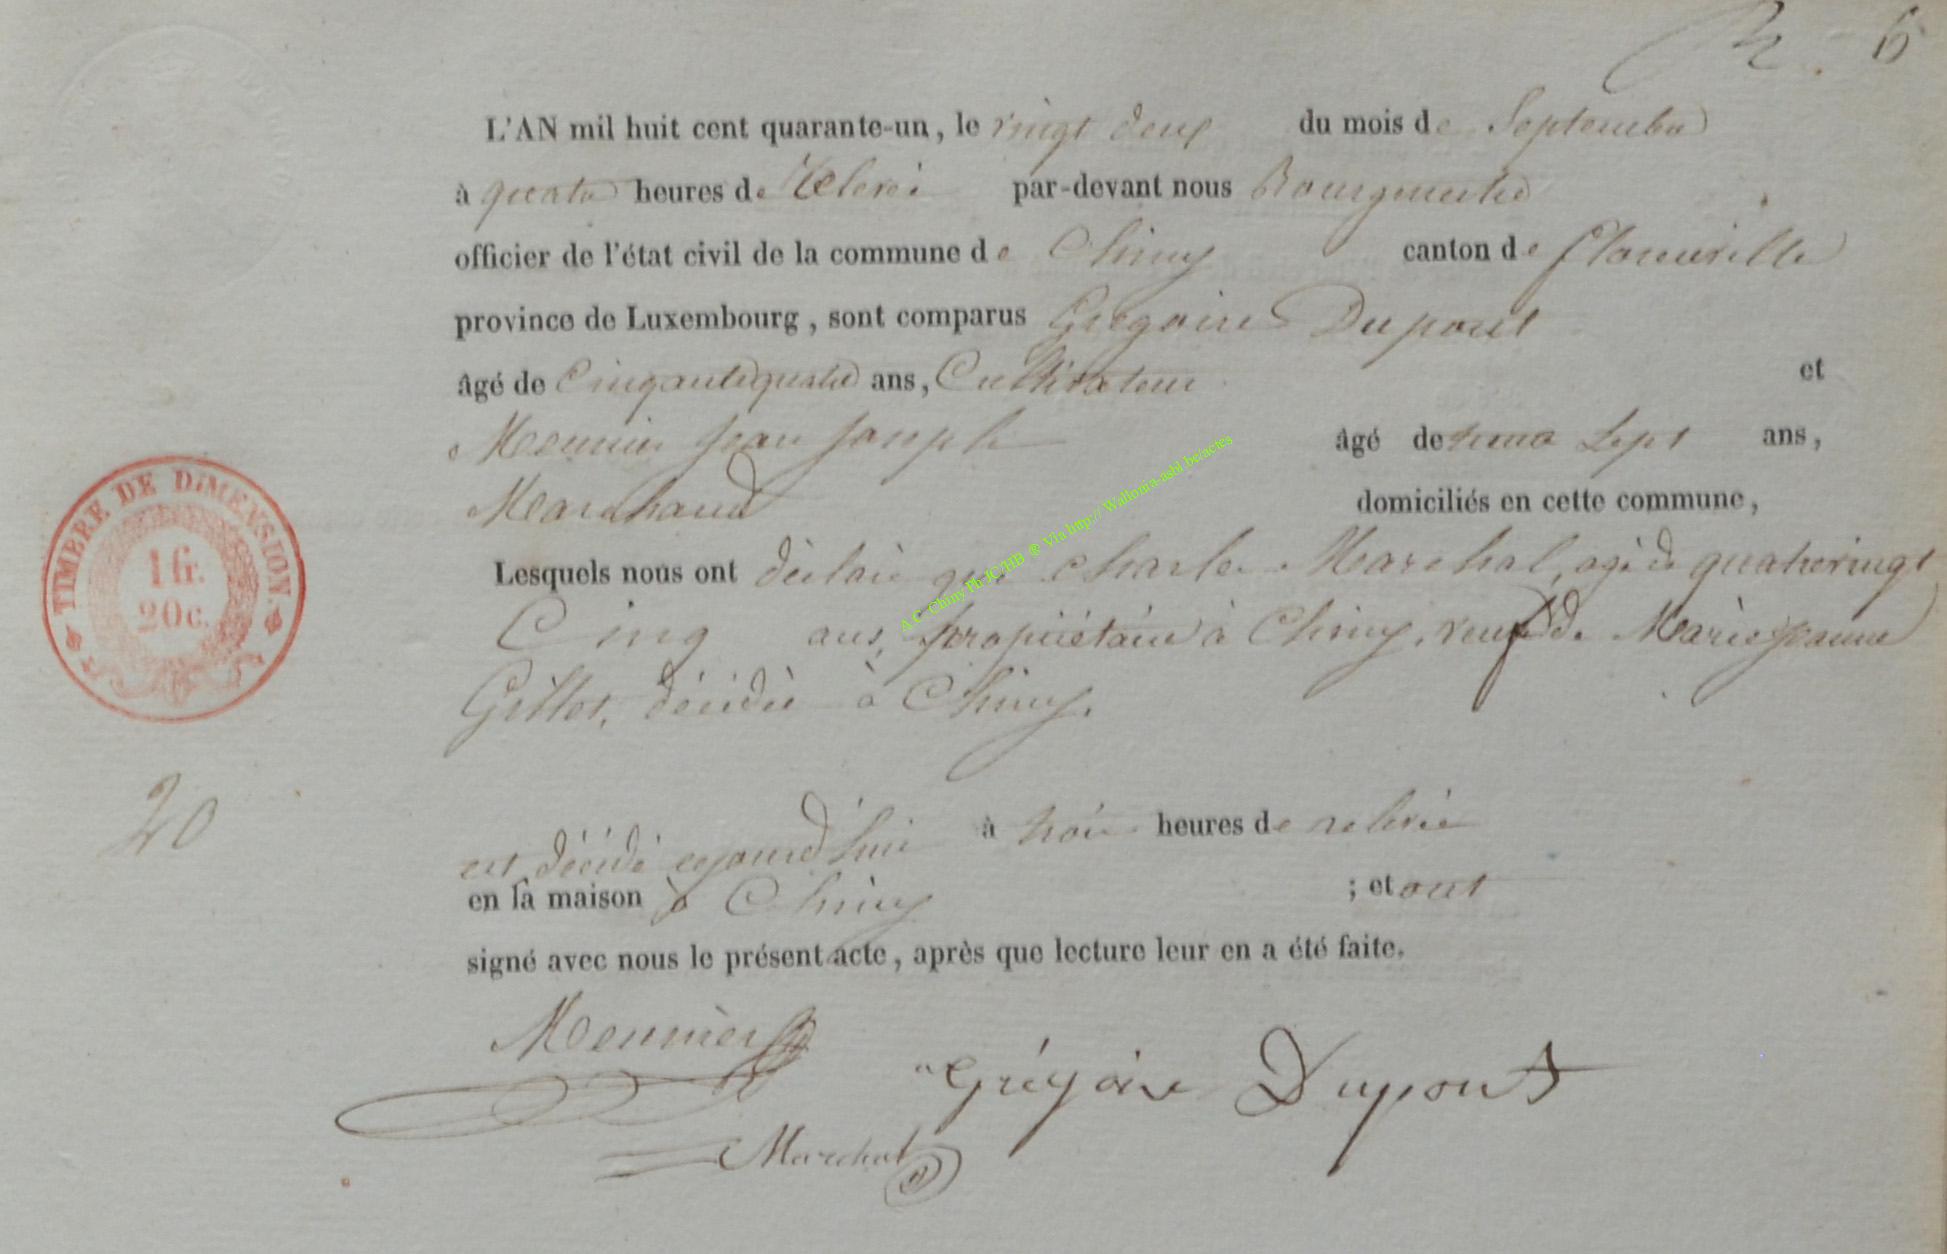 6
L'AN mil huit cent quarante-un, le vingt deux du mois de Septembre
à quatre heures de Relevée par-devant nous Bourgmestre
officier de l'état civil de la commune de Chiny canton de florenville
province de Luxembourg, sont comparus Grégoire Dupont
âgé de Cinquante quatre ans, Cultivateur et
Meunier Jean Joseph âgé de trente Sept ans,
Marchand domiciliés en cette commune,
Lesquels nous ont déclaré que Charles Marchal, agé de quatrevingt
Cinq ans, propriétaire à Chiny, veuf de Marie jeanne
Gillet, décédée à Chiny.
est décédé cejourd'hui à trois heures de relevée
en sa maison à Chiny ; et ont
signé avec nous le présent acte, après que lecture leur en a été faite.
Meunier
Grégoire Dupont
Marchal
TIMBRE DE DIMENSION.
1 fr.
20 c.
20
A C Chiny Ph JC/HB ® Via http:// Wallonia-asbl.be/actes